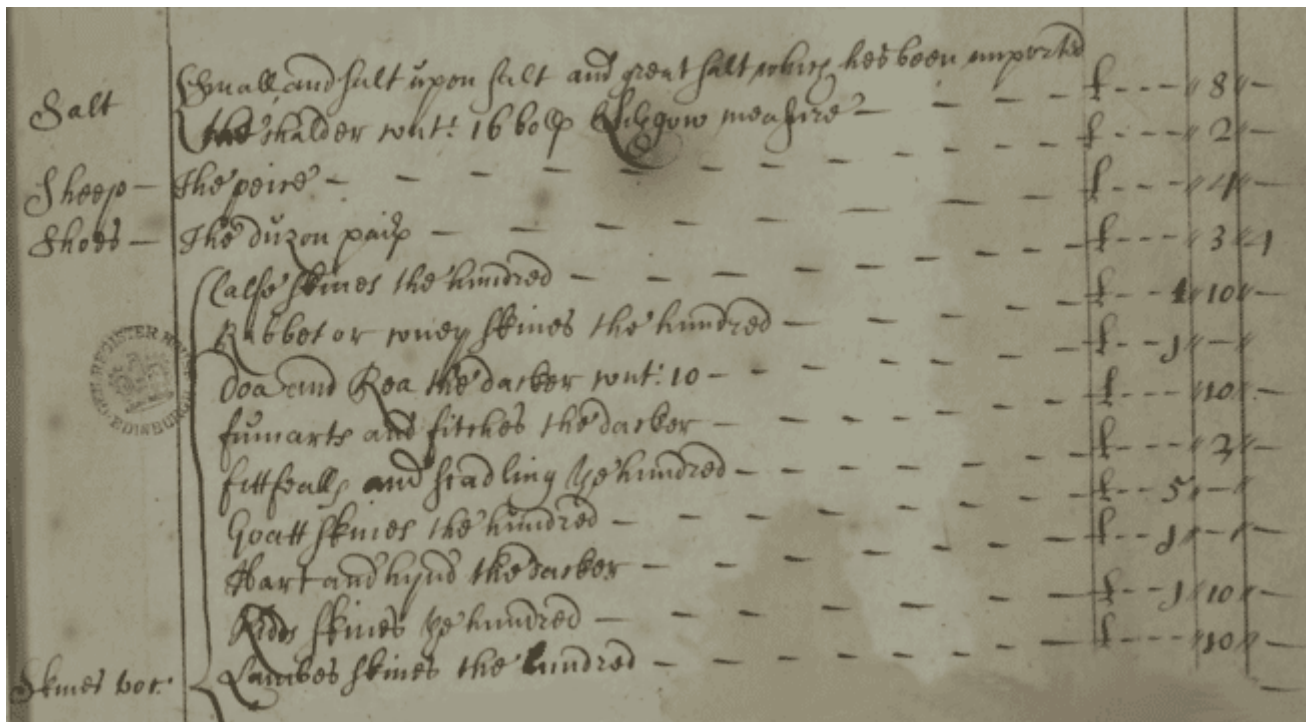 Small and salt upon salt and great salt which hes been imported
Salt the chalder cont: 16 bolls Glasgow measure £ --- " 8 " —
Sheep — The peice £ --- " 2 " —
Shoes — The duzon pairs £ --- " 4 " —
Calfe skines the hundred £ --- " 3 " 4
Rabbet or coney skines the hundred £ --- 1 " 10 " —
Doa and Roa the dacker cont: 10 £ --- 1 " — "
fumarts and fitches the dacker £ --- " 10 "
fittfealls and scadling ye hundred £ --- " 2 " —
Goatt skines the hundred £ --- 5 " — "
Hart and hynd the dacker £ --- 1 " — " —
Kidds skines ye hundred £ --- 1 " 10 " —
Skines vot: Lambes skines the hundred £ --- " 10 " —
REGISTER HOUSE
EDINBURGH